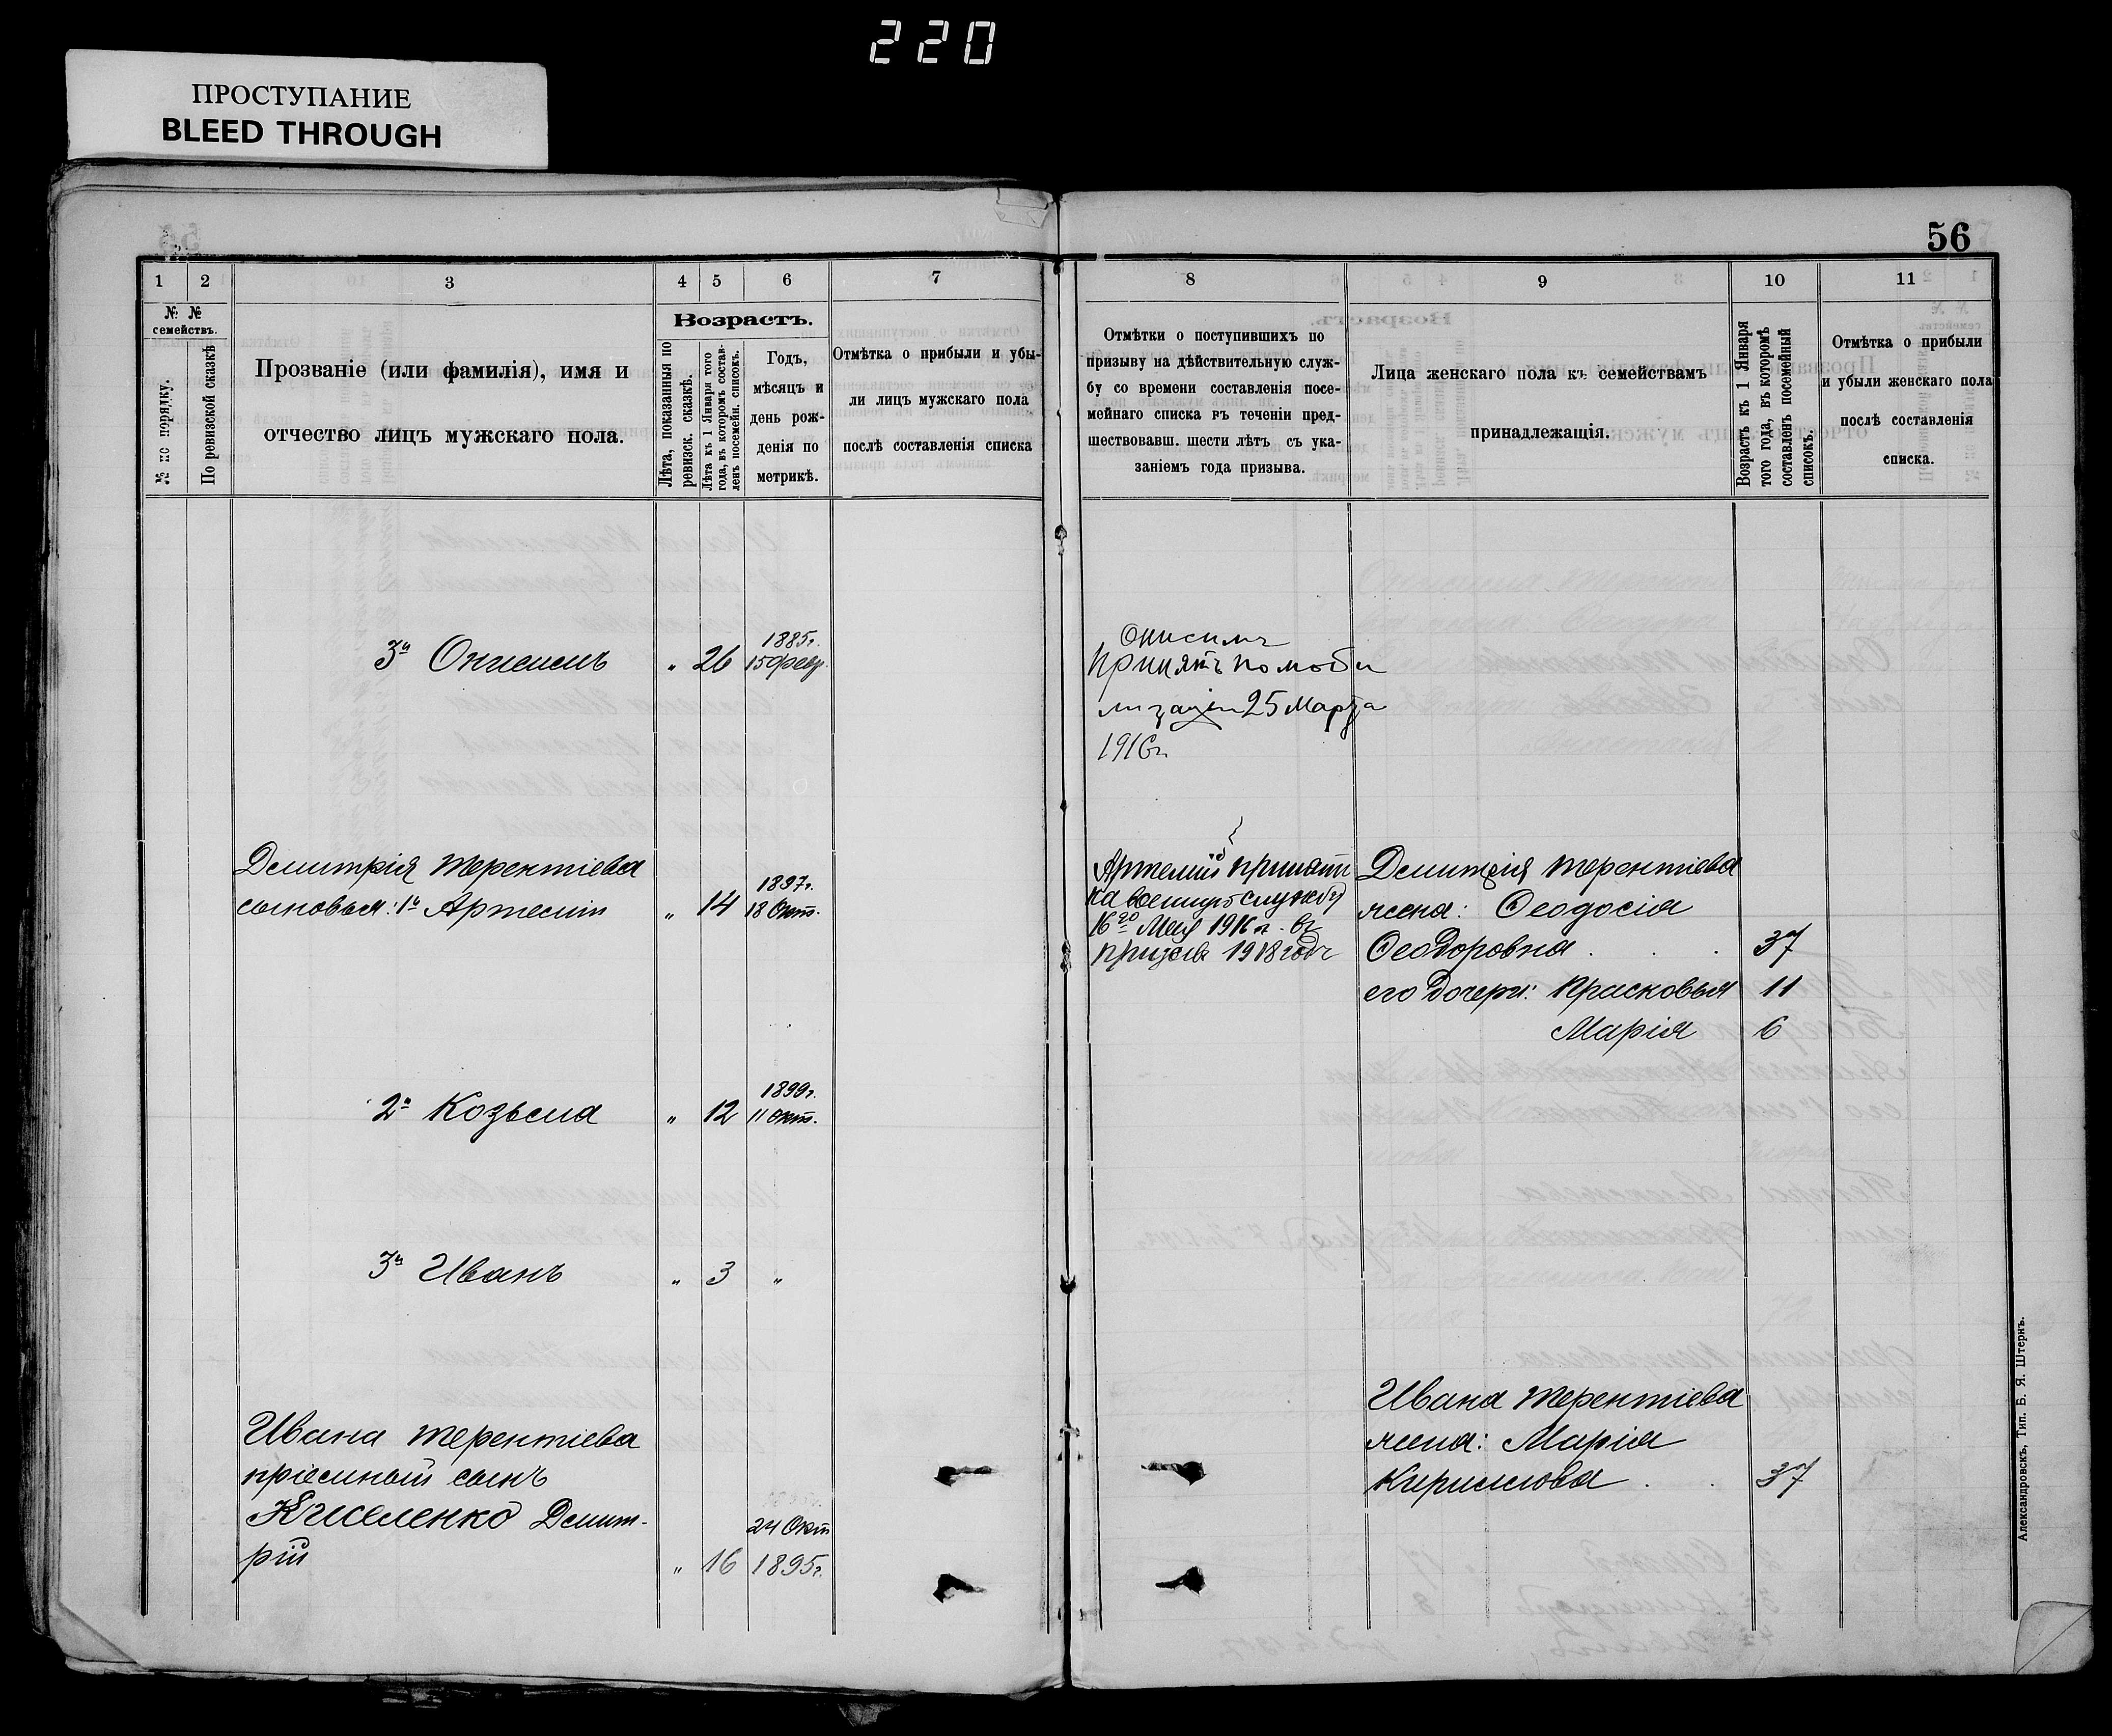 220
ПРОСТУПАНИЕ
BLEED THROUGH
56
1 2 3 4 5 6 7
№ №
семействъ.
№ по порядку.
По ревизской сказкѣ
Прозваніе (или фамилія), имя и
отчество лицъ мужскаго пола.
Возрастъ.
Лѣта, показанныя по
ревизск. сказкѣ.
Лѣта къ 1 Января того
года, въ которомъ состав-
ленъ посемейн. списокъ.
Годъ,
мѣсяцъ и
день рож-
денія по
метрикѣ.
Отмѣтка о прибыли и убы-
ли лицъ мужскаго пола
послѣ составленія списка
3й Онисимъ „ 26 1885г.
15 февр.
Демитрія Терентіева
сыновья: 1й Артемій „ 14 1897г.
18 Окт.
2й Козьма „ 12 1899г.
11 Окт.
3й Иванъ „ 3 „
Ивана Терентіева
пріемный сынъ
Киселенко Демит-
рій „ 16 24 Окт
1895г.
8 9 10 11
Отмѣтки о поступившихъ по
призыву на дѣйствительную служ-
бу со времени составленія посе-
мейнаго списка въ теченіи пред-
шествовавш. шести лѣтъ съ ука-
заніемъ года призыва.
Лица женскаго пола къ семействамъ
принадлежащія.
Возрастъ къ 1 Января
того года, въ которомъ
составленъ посемейный
списокъ.
Отмѣтка о прибыли
и убыли женскаго пола
послѣ составленія
списка.
Онисимъ
принятъ по моби
лизаціи 25 Марта
1916г.
Артемій принятъ
на военную службу
16го Мая 1916 г. въ
призывъ 1918 года
Демитрія Терентіева
жена: Ѳеодосія
Ѳеодоровна . . . 37
его дочери: Прасковья 11
Марія 6
Ивана Терентіева
жена: Марія
Кириллова . . 37
Александровскъ, Тип. Б. Я. Штернъ.